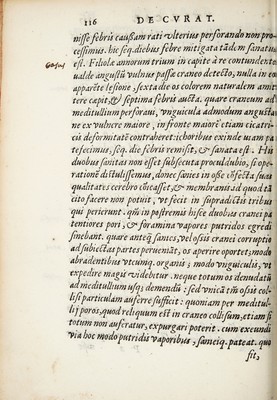 116 DE CVRAT.
nisse febris causam rati vlterius perforando non pro=
cessimus. hic seq. diebus febre mitigata tādem sanatus
est. Filiolæ annorum trium in capite à re contundente
Casus
ualde angustū vulnus passæ craneo detecto, nulla in eo
apparēte læsione, sexta die os colorem naturalem amit
tere capit, & septima febris aucta. quare craneum ad
meditullium perforaui, vnguicula admodum angusta:
ne ex vulnere maiore, in fronte maiorē etiam cicatri=
cis deformitatē contraheret: ichoribus exinde uiam pa
tefecimus, seq. die febris remisit, & sanata est. His
duobus sanitas non esset subsecuta proculdubio, si ope=
rationē distulissemus, donec sanies in osse cōfecta suas
qualitates cerebro cōicasset, & membranis: id quod tā
cito facere non potuit, vt fecit in supradictis tribus
qui perierunt. qm̄ in postremis hisce duobus cranei pa
tentiores pori, & foramina vapores putridos egredi
sinebant. quare anteq̄ sanies, vel ossis cranei corruptio
ad subiectas partes perueniāt, os aperire oportet; modo
abradentibus vtcunq. organis; modo vnguiculis, vt
expedire magis videbitur. neque totum os denudatū
ad meditullium usq; demendū: sed vnicā tm̄ ossis col=
lisi particulam auferre sufficit: quoniam per meditul=
lij poros, quod reliquum est in craneo collisum, etiam si
totum non auferatur, expurgari poterit. cum excundi
via hoc modo putridis vaporibus, saneiq. pateat. quo
sit,